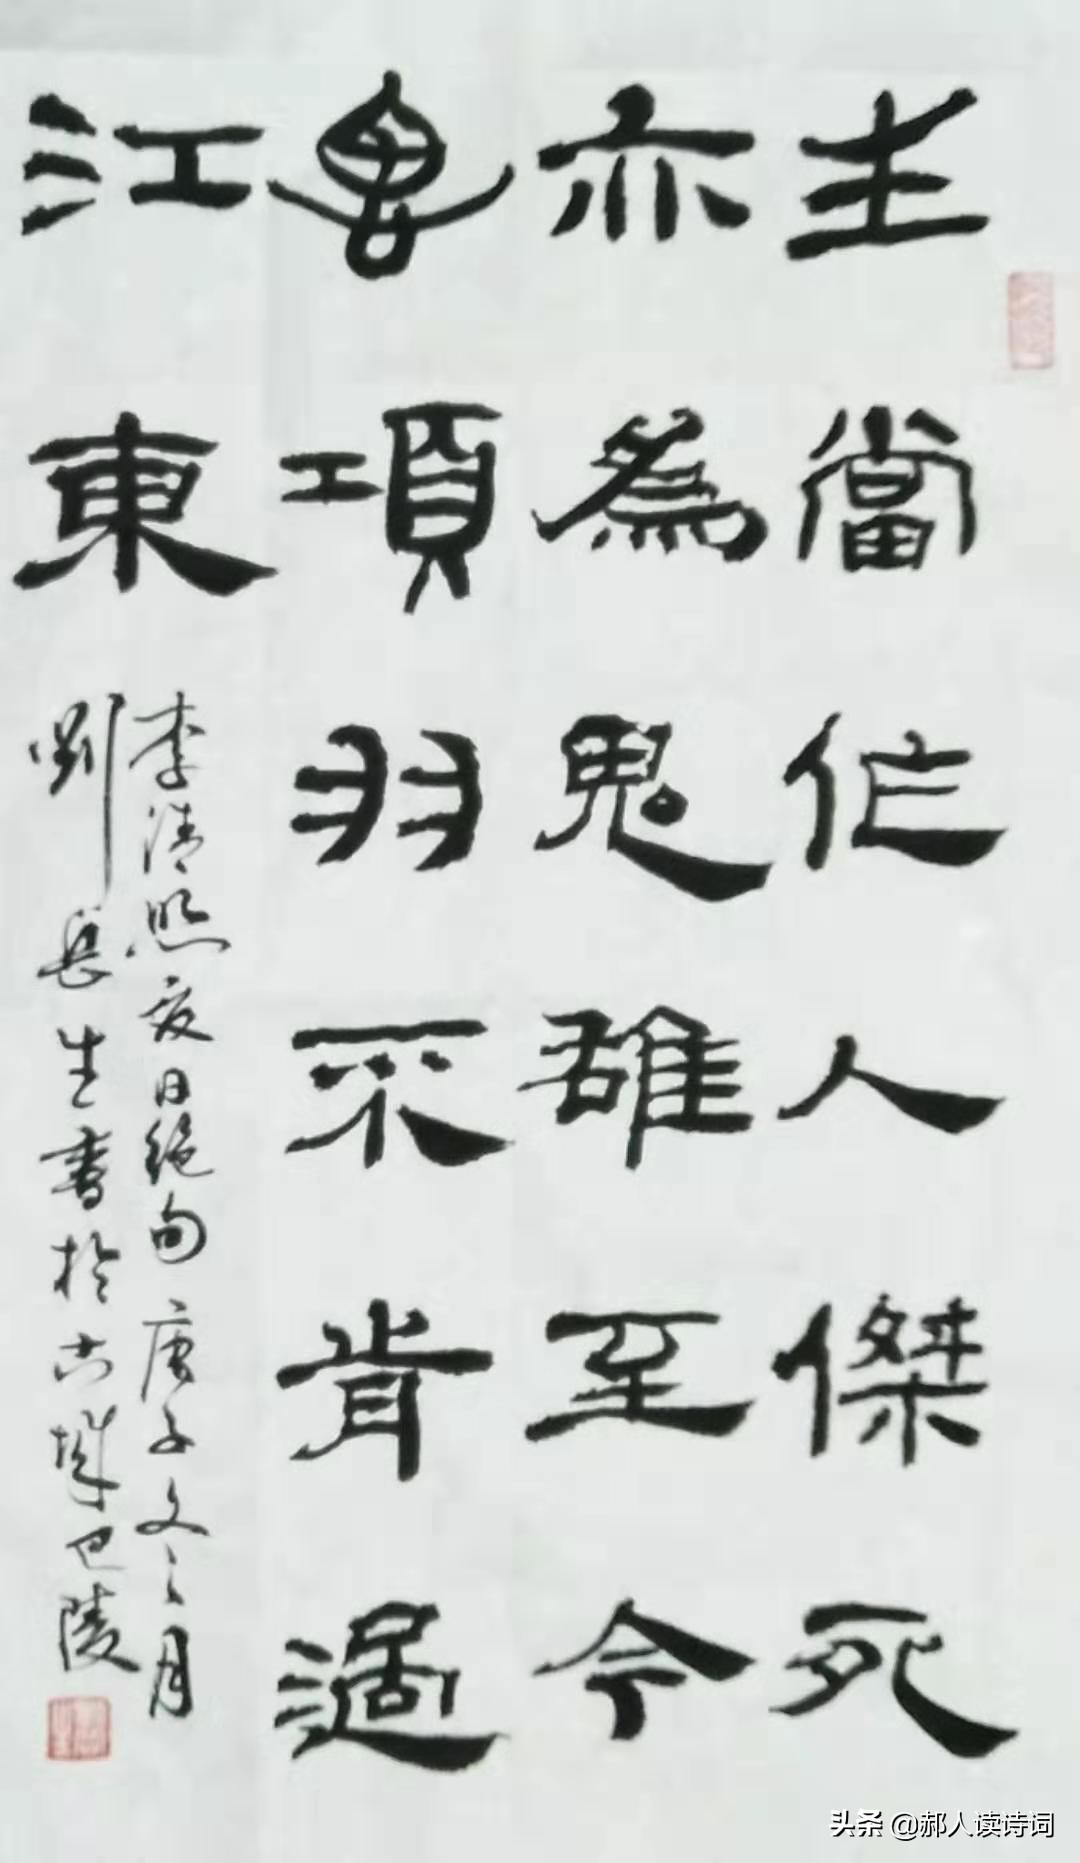 生當作人傑死
亦為鬼雄至今
思項羽不肯過
江東
李清照夏日絕句庚子冬月
劉生書於古城巴陵
头条 @郝人读诗词